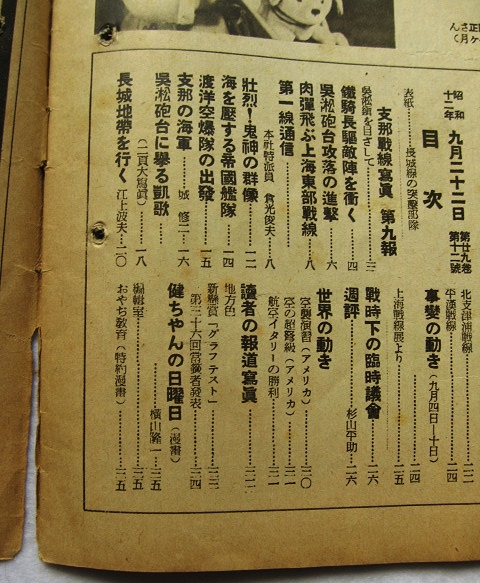 昭和十二年 九月二十二日 第廿九巻 第十二號
目次
表紙……長城線の突撃部隊
支那戰線寫眞 第九報
吳淞鎭を目ざして……三
鐵騎長驅敵陣を衝く……四
吳淞砲台攻落の進擊……六
肉彈飛ぶ上海東部戰線……八
第一線通信……八
本社特派員 倉光俊夫
壯烈！鬼神の群像……一二
海を壓する帝國艦隊……一四
渡洋空爆隊の出發……一五
支那の海軍……城 修二…一六
吳淞砲台に擧る凱歌
(二頁大寫眞)……一八
長城地帶を行く…江上波夫…二〇
北支津浦戰線……二二
平漢戰線……二四
事變の動き(九月四日—十日)
……二四
上海戰線展より……二五
戰時下の臨時議會……二六
週評……杉山平助…二六
世界の動き
空襲演習(アメリカ)……三〇
空の超弩級(アメリカ)……三一
航空イタリーの勝利……三一
讀者の報道寫眞……三二
地方色
新懸賞「グラフテスト」……三三
第三十六回當籤者發表……三四
健ちやんの日曜日(漫畫)
……橫山隆一…三五
編輯室……三五
おやぢ敎育(特約漫畫)……三五